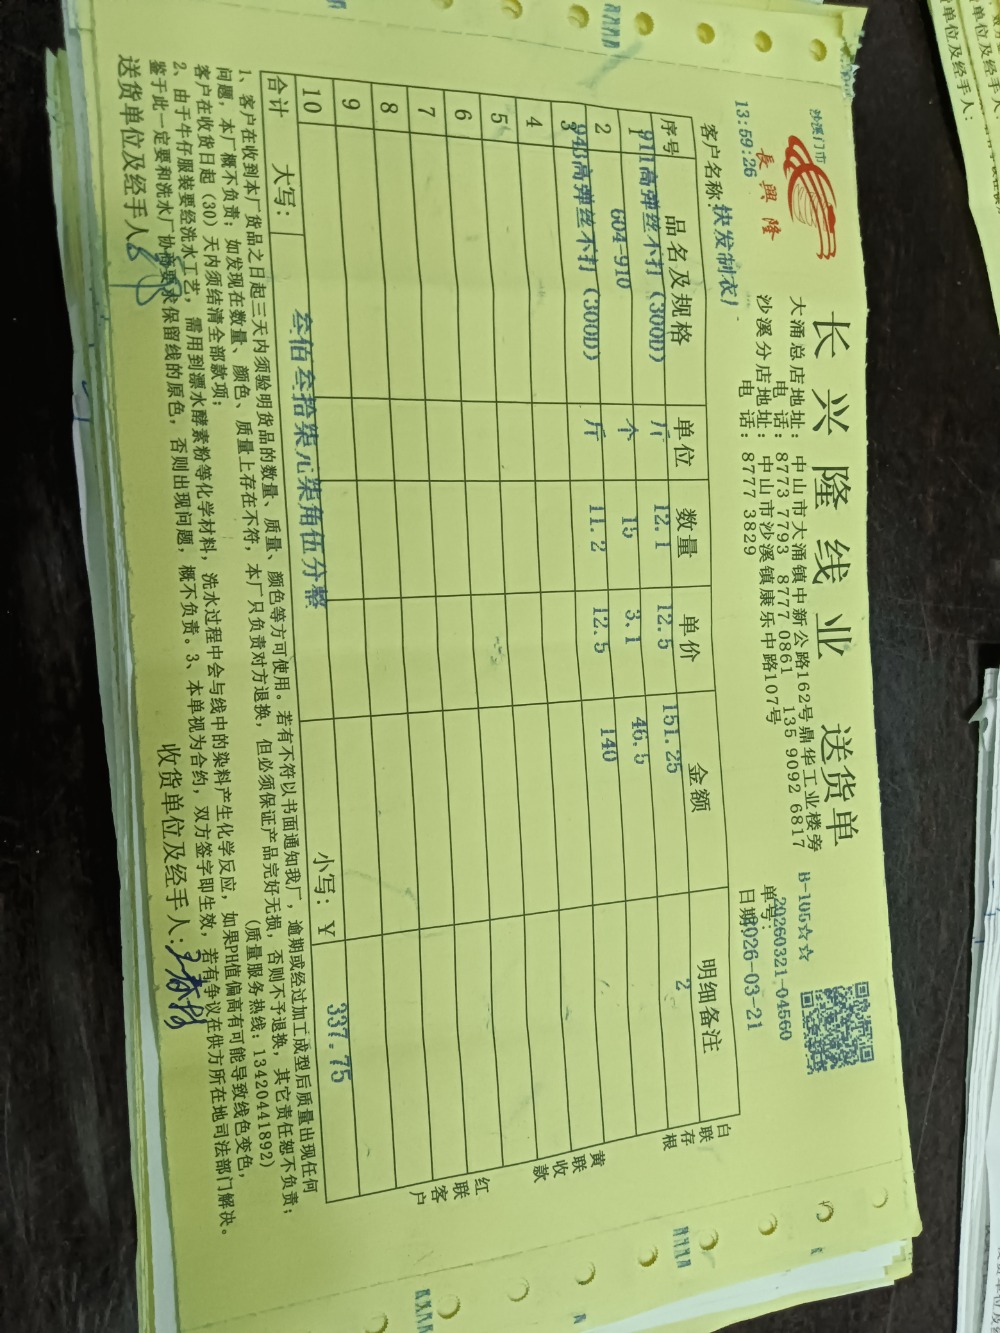 沙溪门市
長興隆
13:59:26
长兴隆线业 送货单
大涌总店地址：中山市大涌镇中新公路162号鼎华工业楼旁
电话：8773 7793 8777 0861 135 9092 6817
沙溪分店地址：中山市沙溪镇康乐中路107号
电话：8777 3829
B-105☆☆
单号：20260321-04560
日期：2026-03-21
客户名称：快发制衣厂
序号 品名及规格 单位 数量 单价 金额 明细备注
1 911高弹丝不打（300D） 斤 12.1 12.5 151.25 2
2 604-910 个 15 3.1 46.5
3 943高弹丝不打（300D） 斤 11.2 12.5 140
4
5
6
7
8
9
10
合计 大写：叁佰叁拾柒元柒角伍分整 小写：￥ 337.75
白联存根
黄联收款
红联客户
1、客户在收到本厂货品之日起三天内须验明货品的数量、质量、颜色等方可使用。若有不符以书面通知我厂，逾期或经过加工成型后质量出现任何
问题，本厂概不负责；如发现在数量、颜色、质量上存在不符，本厂只负责对方退换，但必须保证产品完好无损，否则不予退换，其它责任恕不负责；
客户在收货日起（30）天内须结清全部款项； （质量服务热线：13420441892）
2、由于牛仔服装要经洗水工艺，需用到漂水酵素粉等化学材料，洗水过程中会与线中的染料产生化学反应，如果PH值偏高有可能导致线色变色，
鉴于此一定要和洗水厂协商要求保留线的原色，否则出现问题，概不负责。3、本单视为合约，双方签字即生效，若有争议在供方所在地司法部门解决。
送货单位及经手人： 收货单位及经手人：
单位及经手人：